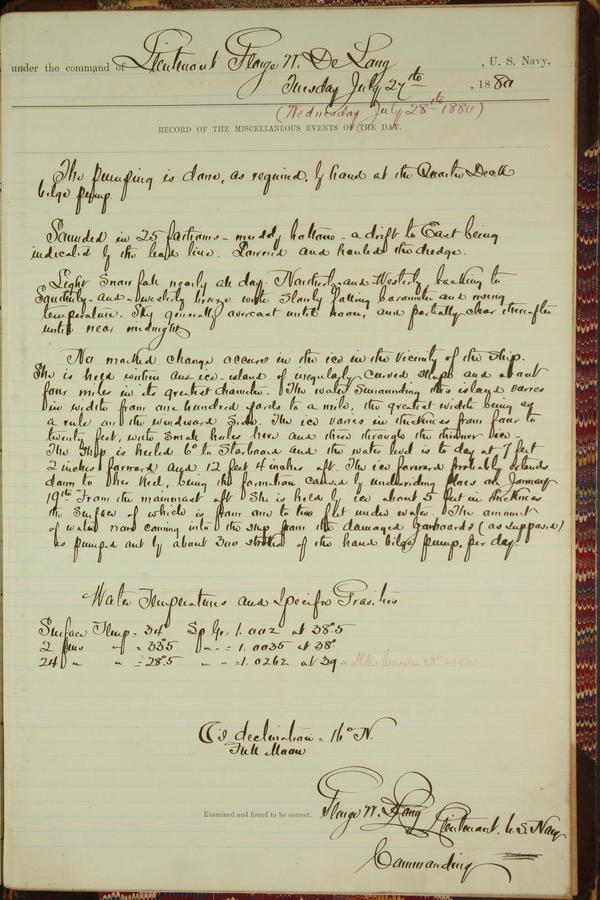 under the command of Lieutenant George W. De Long, U. S. Navy,
Tuesday July 27th, 1880
(Wednesday July 28th 1880)
RECORD OF THE MISCELLANEOUS EVENTS OF THE DAY.
The pumping is done, as required, by hand at the Quarter Deck
bilge pump.
Sounded in 25 fathoms - muddy bottom - a drift to East being
indicated by the lead line. Lowered and hauled the dredge.
Light snow fall nearly all day. Northerly-and-Westerly backing to
Southerly-and-Westerly breeze with slowly falling barometer and rising
temperature. Sky generally overcast until noon, and partially clear thereafter
until near midnight.
No marked change occurs in the ice in the vicinity of the ship.
She is held within an ice-island of irregularly curved shape and about
four miles in its greatest diameter. The water surrounding this island varies
in width from one hundred yards to a mile, the greatest width being as
a rule on the windward side. The ice varies in thickness from four to
twenty feet, with small holes here and there through the thinner ice.
The ship is heeled 6° to Starboard and the water level is to day at 7 feet
2 inches forward and 12 feet 4 inches aft. The ice forward probably extends
down to this Keel, being the formation caused by underriding floes on January
19th. From the mainmast aft she is held by ice about 5 feet in thickness
the surface of which is from one to two feet under water. The amount
of water now coming into the ship from the damaged garboards (as supposed)
is pumped out by about 300 strokes of the hand bilge pump, per day.
Water Temperatures and Specific Gravities
Surface Temp = 34° Sp. Gr = 1.002 at 38°.5
2 fms " = 33°.5 " " = 1.0035 at 38°
24 " " = 28°.5 " " = 1.0262 at 39
☾'s declination = 16° N.
Full Moon
Examined and found to be correct. George W. De Long Lieutenant. U. S. Navy
Commanding